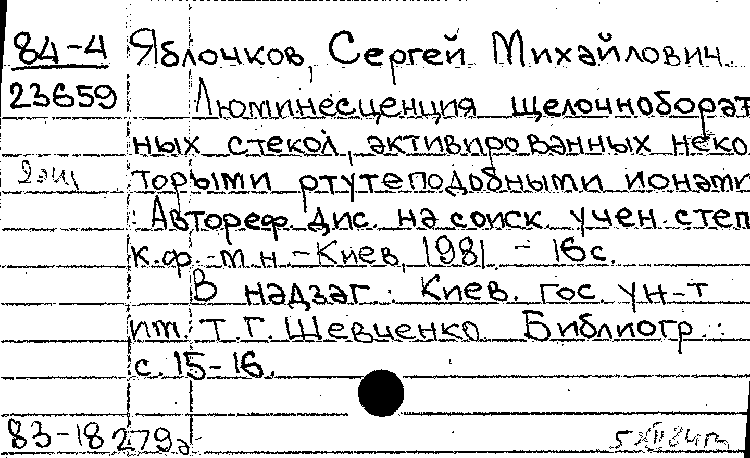 84-4 Яблочков, Сергей Михайлович.
23659 Люминесценция щелочноборат
ных стекол, активированных неко
2 эк торыми ртутеподобными ионами
: Автореф. дис. на соиск. учен. степ
к.ф.-м.н. - Киев, 1981. - 16 с.
В надзаг.: Киев. гос. ун-т
им. Т.Г. Шевченко. Библиогр.:
с. 15-16.
83-18279а